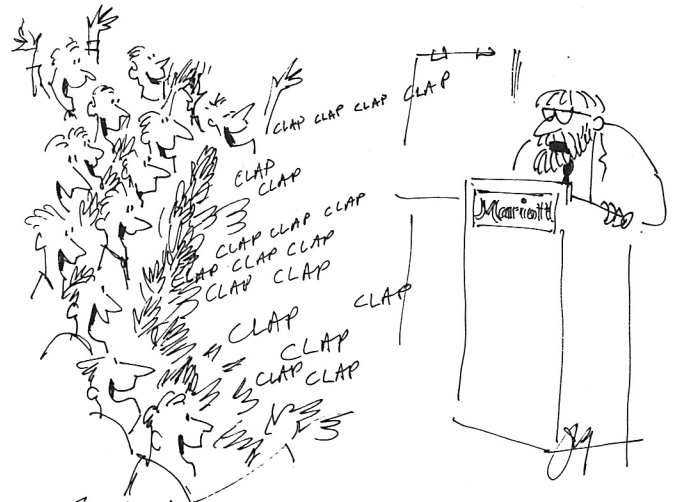 CLAP CLAP CLAP CLAP
CLAP
CLAP
CLAP CLAP CLAP
CLAP CLAP CLAP
CLAP CLAP
CLAP
CLAP
CLAP
CLAP CLAP
Marriott